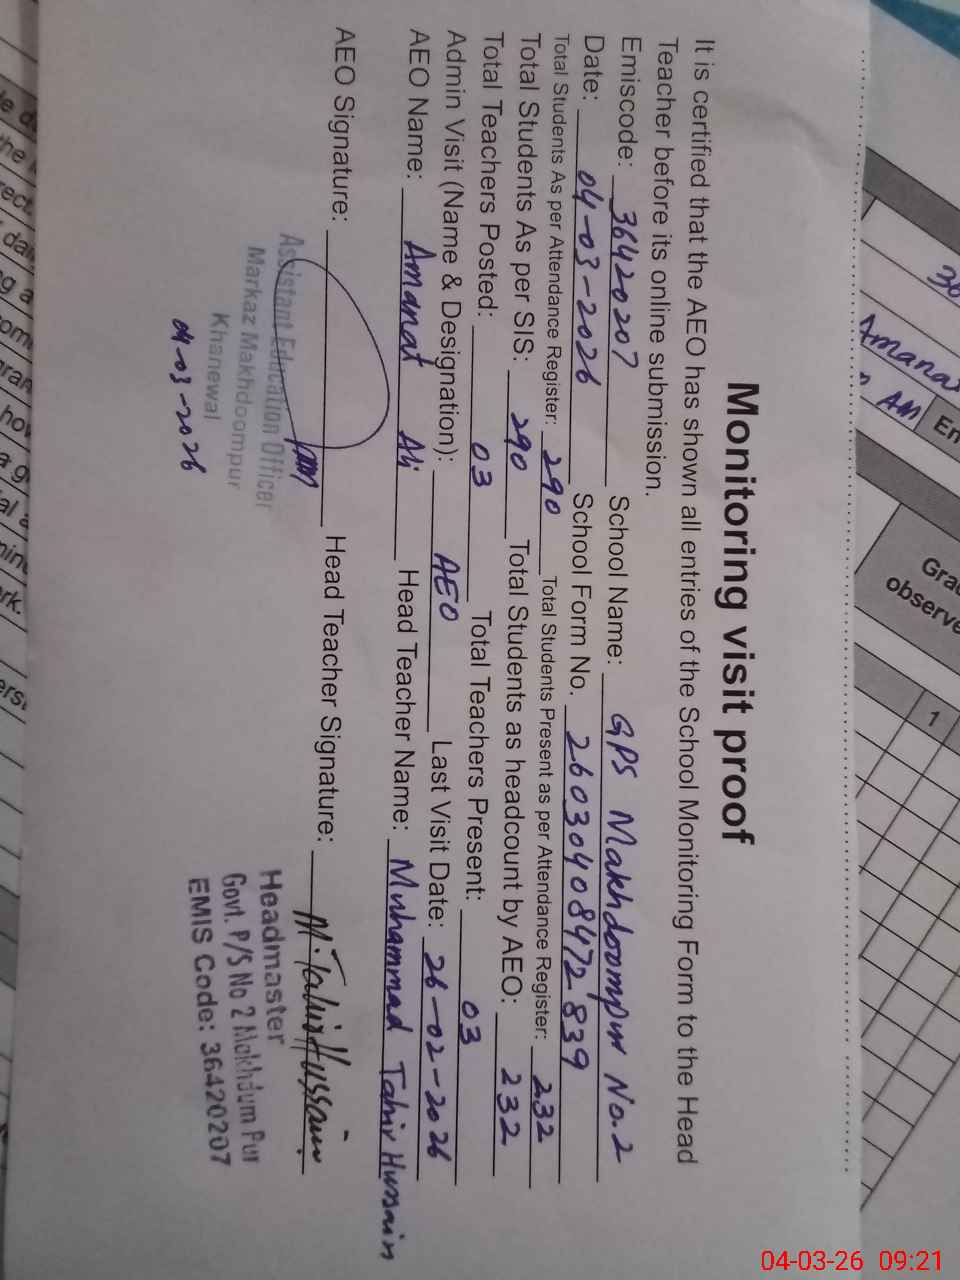 Monitoring visit proof
It is certified that the AEO has shown all entries of the School Monitoring Form to the Head
Teacher before its online submission.
Emiscode: 36420207 School Name: GPS Makhdoompur No.2
Date: 04-03-2026 School Form No. 26030408472839
Total Students As per Attendance Register: 290 Total Students Present as per Attendance Register: 232
Total Students As per SIS: 290 Total Students as headcount by AEO: 232
Total Teachers Posted: 03 Total Teachers Present: 03
Admin Visit (Name & Designation): AEO Last Visit Date: 26-02-2026
AEO Name: Amanat Ali Head Teacher Name: Muhammad Tahir Hussain
AEO Signature: Head Teacher Signature: M. Tahir Hussain
Assistant Education Officer
Markaz Makhdoompur
Khanewal
04-03-2026
Headmaster
Govt. P/S No 2 Makhdum Pur
EMIS Code: 36420207
Amanat
AM
En
Grad
observe
1
04-03-26 09:21